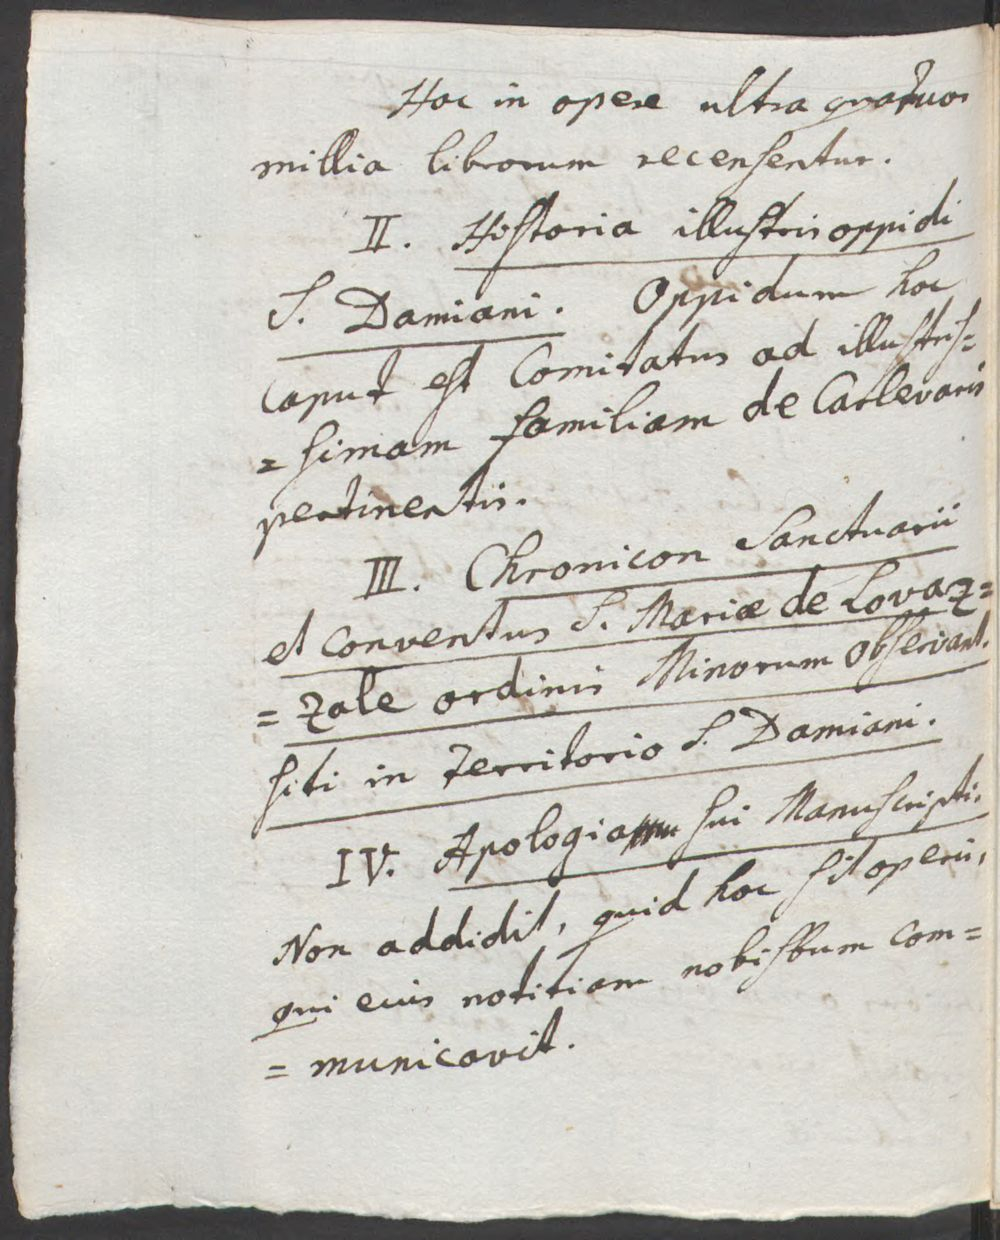 Hoc in opere ultra quatuor
millia librorum recensentur.
II. Historia illustris oppidi
S. Damiani. Oppidum hoc
caput est Comitatus ad illustris=
=simam familiam de Carlevaris
pertinentis.
III. Chronicon Sanctuarii
et conventus S. Mariæ de Lovaz=
=zole ordinis Minorum Observant.
siti in territorio S. Damiani.
IV. Apologia sui Manuscripti.
Non addidit, quid hoc sit operis,
qui eius notitiam nobiscum com=
=municavit.